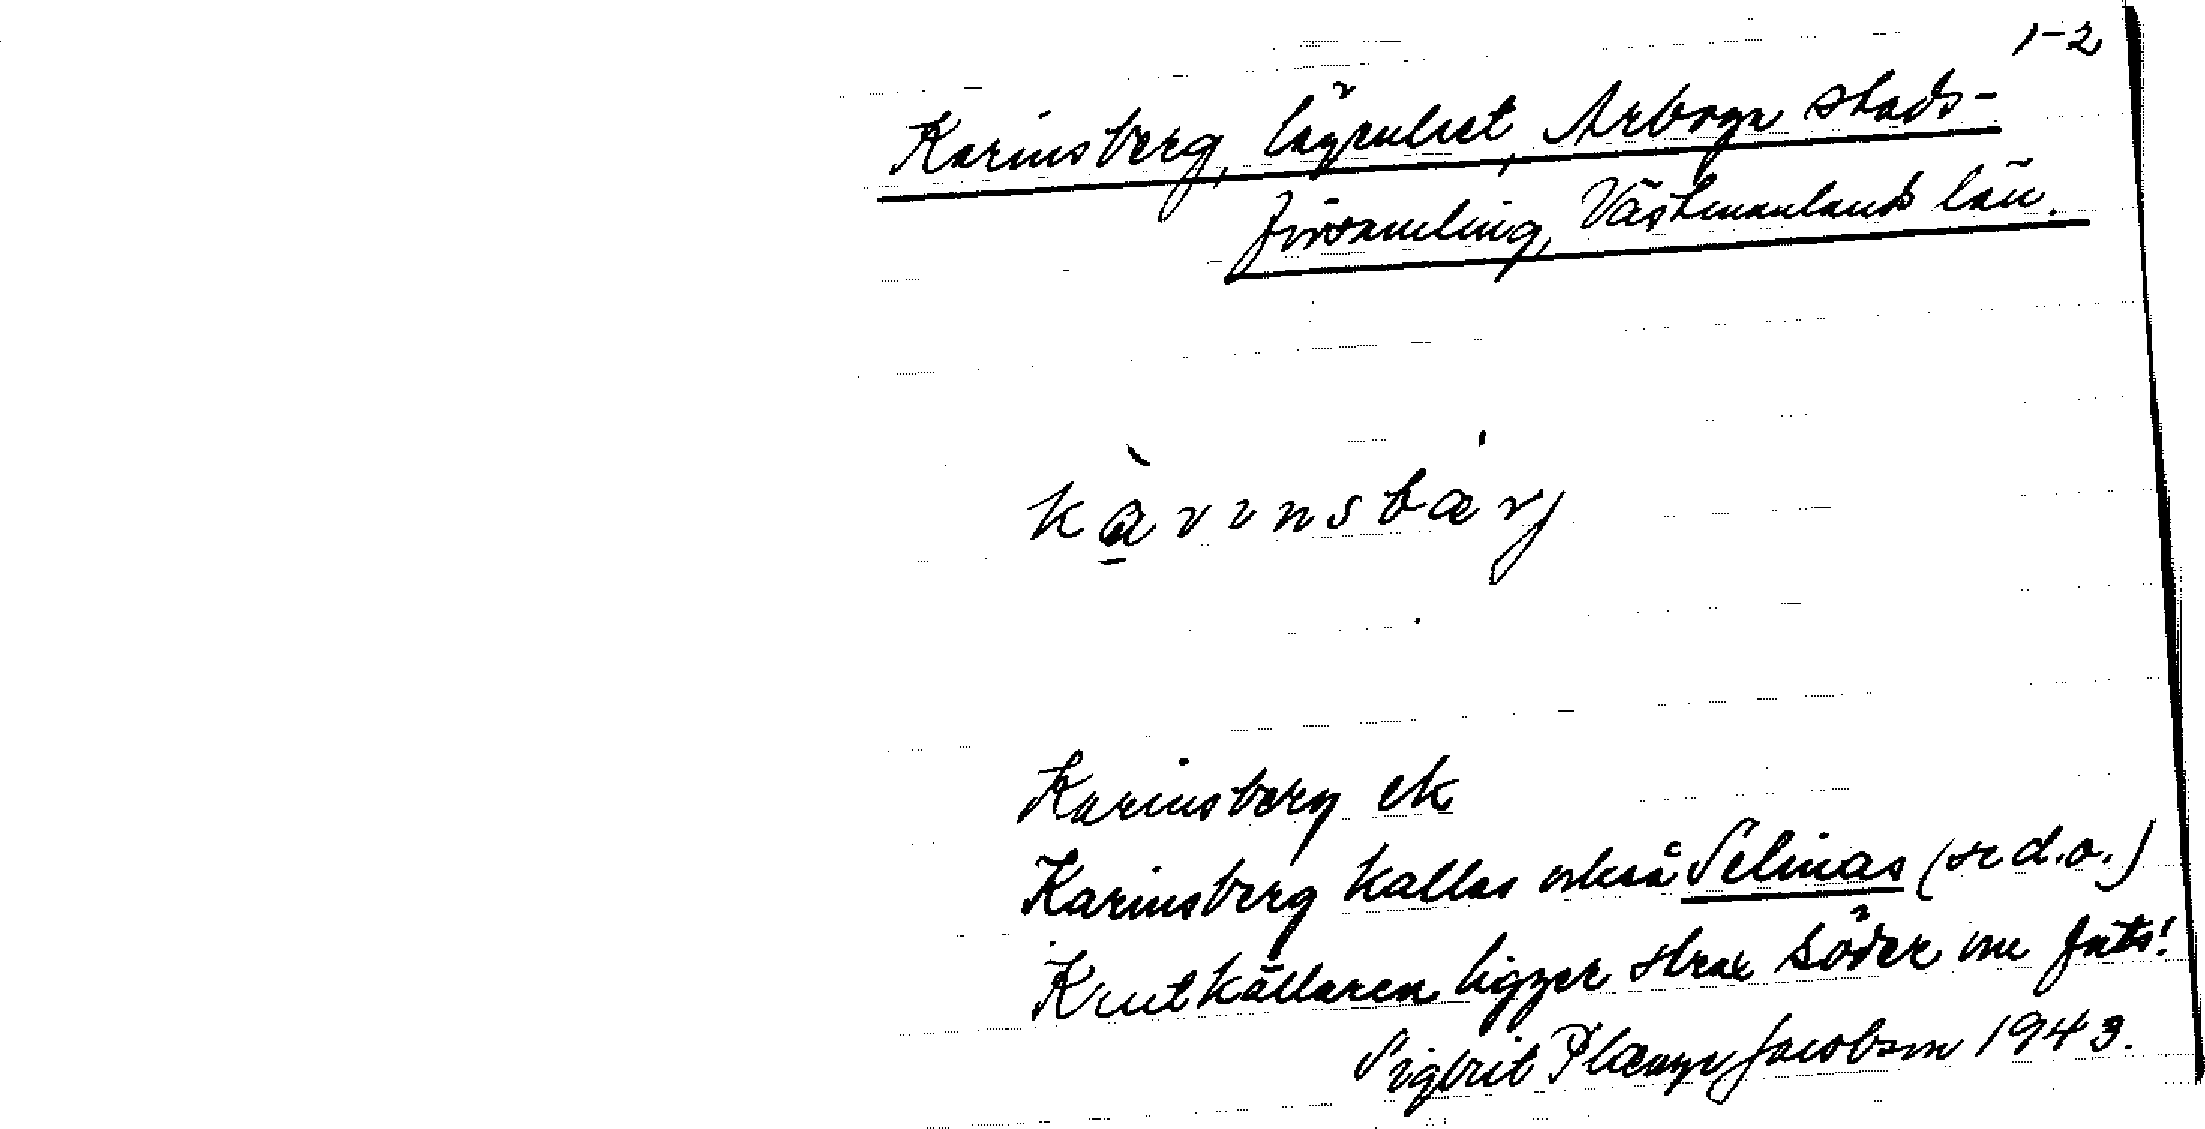 1-2
Karinsberg, lägenhet, Arboga stads-
församling, Västmanlands län.
kàrinsbärj
Karinsberg ek
Karinsberg kallas också Selinas (se d.o.)
Krutkällaren ligger strax söder om
Sigbrit Plænge Jacobson 1943.